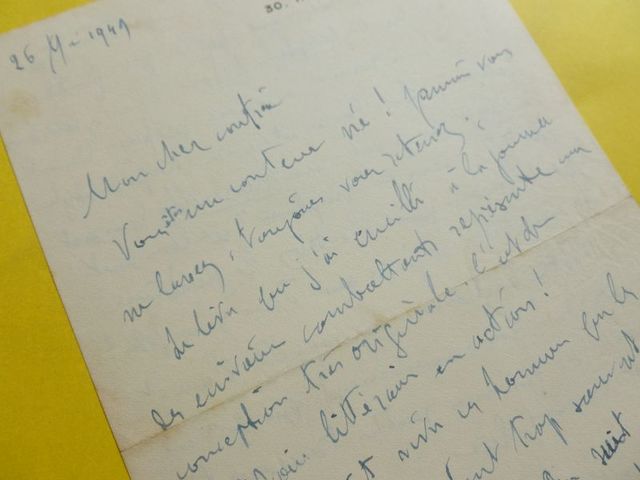 30.
26 Mai 1949
Mon cher confrère
Vous êtes un conteur né! Jamais vous
ne lassez, toujours vous retenez.
Le livre que j'ai cueilli à la journée
des écrivains combattants représente une
conception très originale: l'art de
littéraire en action!
ces hommes que les
trop souvent